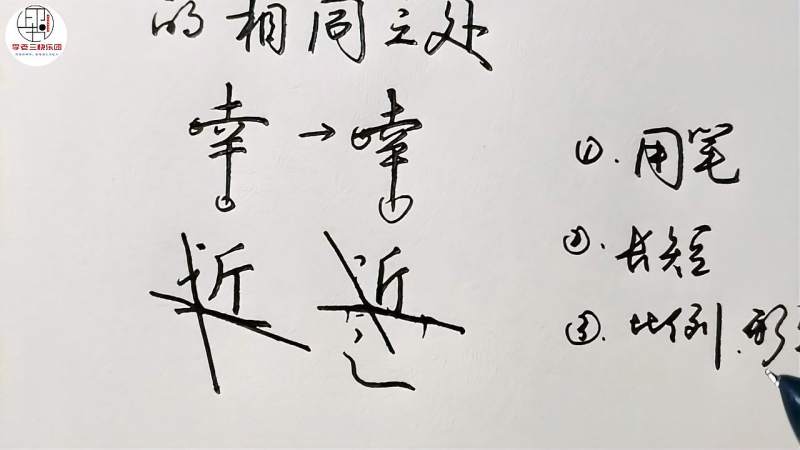 李老三快乐团
的相同之处
幸→幸
近 近
①.用笔
②.长短
③.比例.形